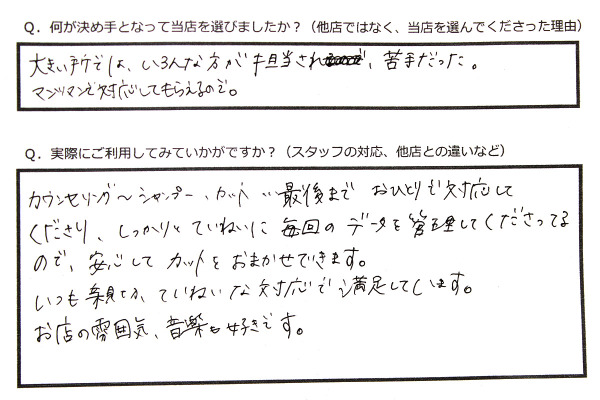 Q．何が決め手となって当店を選びましたか？（他店ではなく、当店を選んでくださった理由）
大きい所では、いろんな方が担当され で、苦手だった。
マンツーマンで対応してもらえるので。
Q．実際にご利用してみていかがですか？（スタッフの対応、他店との違いなど）
カウンセリング～シャンプー、カット…最後まで おひとりで対応して
くださり、しっかりとていねいに毎回のデータを管理してくださってる
ので、安心してカットをおまかせできます。
いつも親切、ていねいな対応で満足しています。
お店の雰囲気、音楽も好きです。